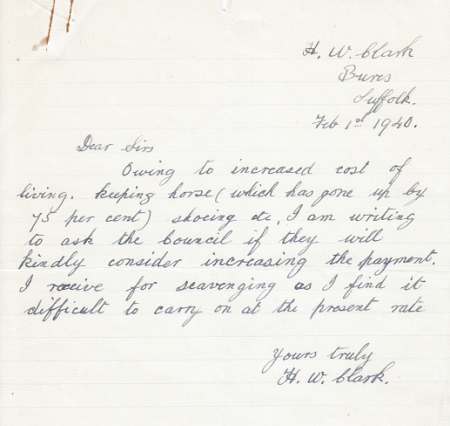 H. W. Clark
Bures
Suffolk.
Feb 1st 1940.
Dear Sirs
Owing to increased cost of
living. keeping horse (which has gone up by
75 per cent) shoeing etc, I am writing
to ask the Council if they will
kindly consider increasing the payment.
I receive for scavenging as I find it
difficult to carry on at the present rate
Yours truly
H. W. Clark.